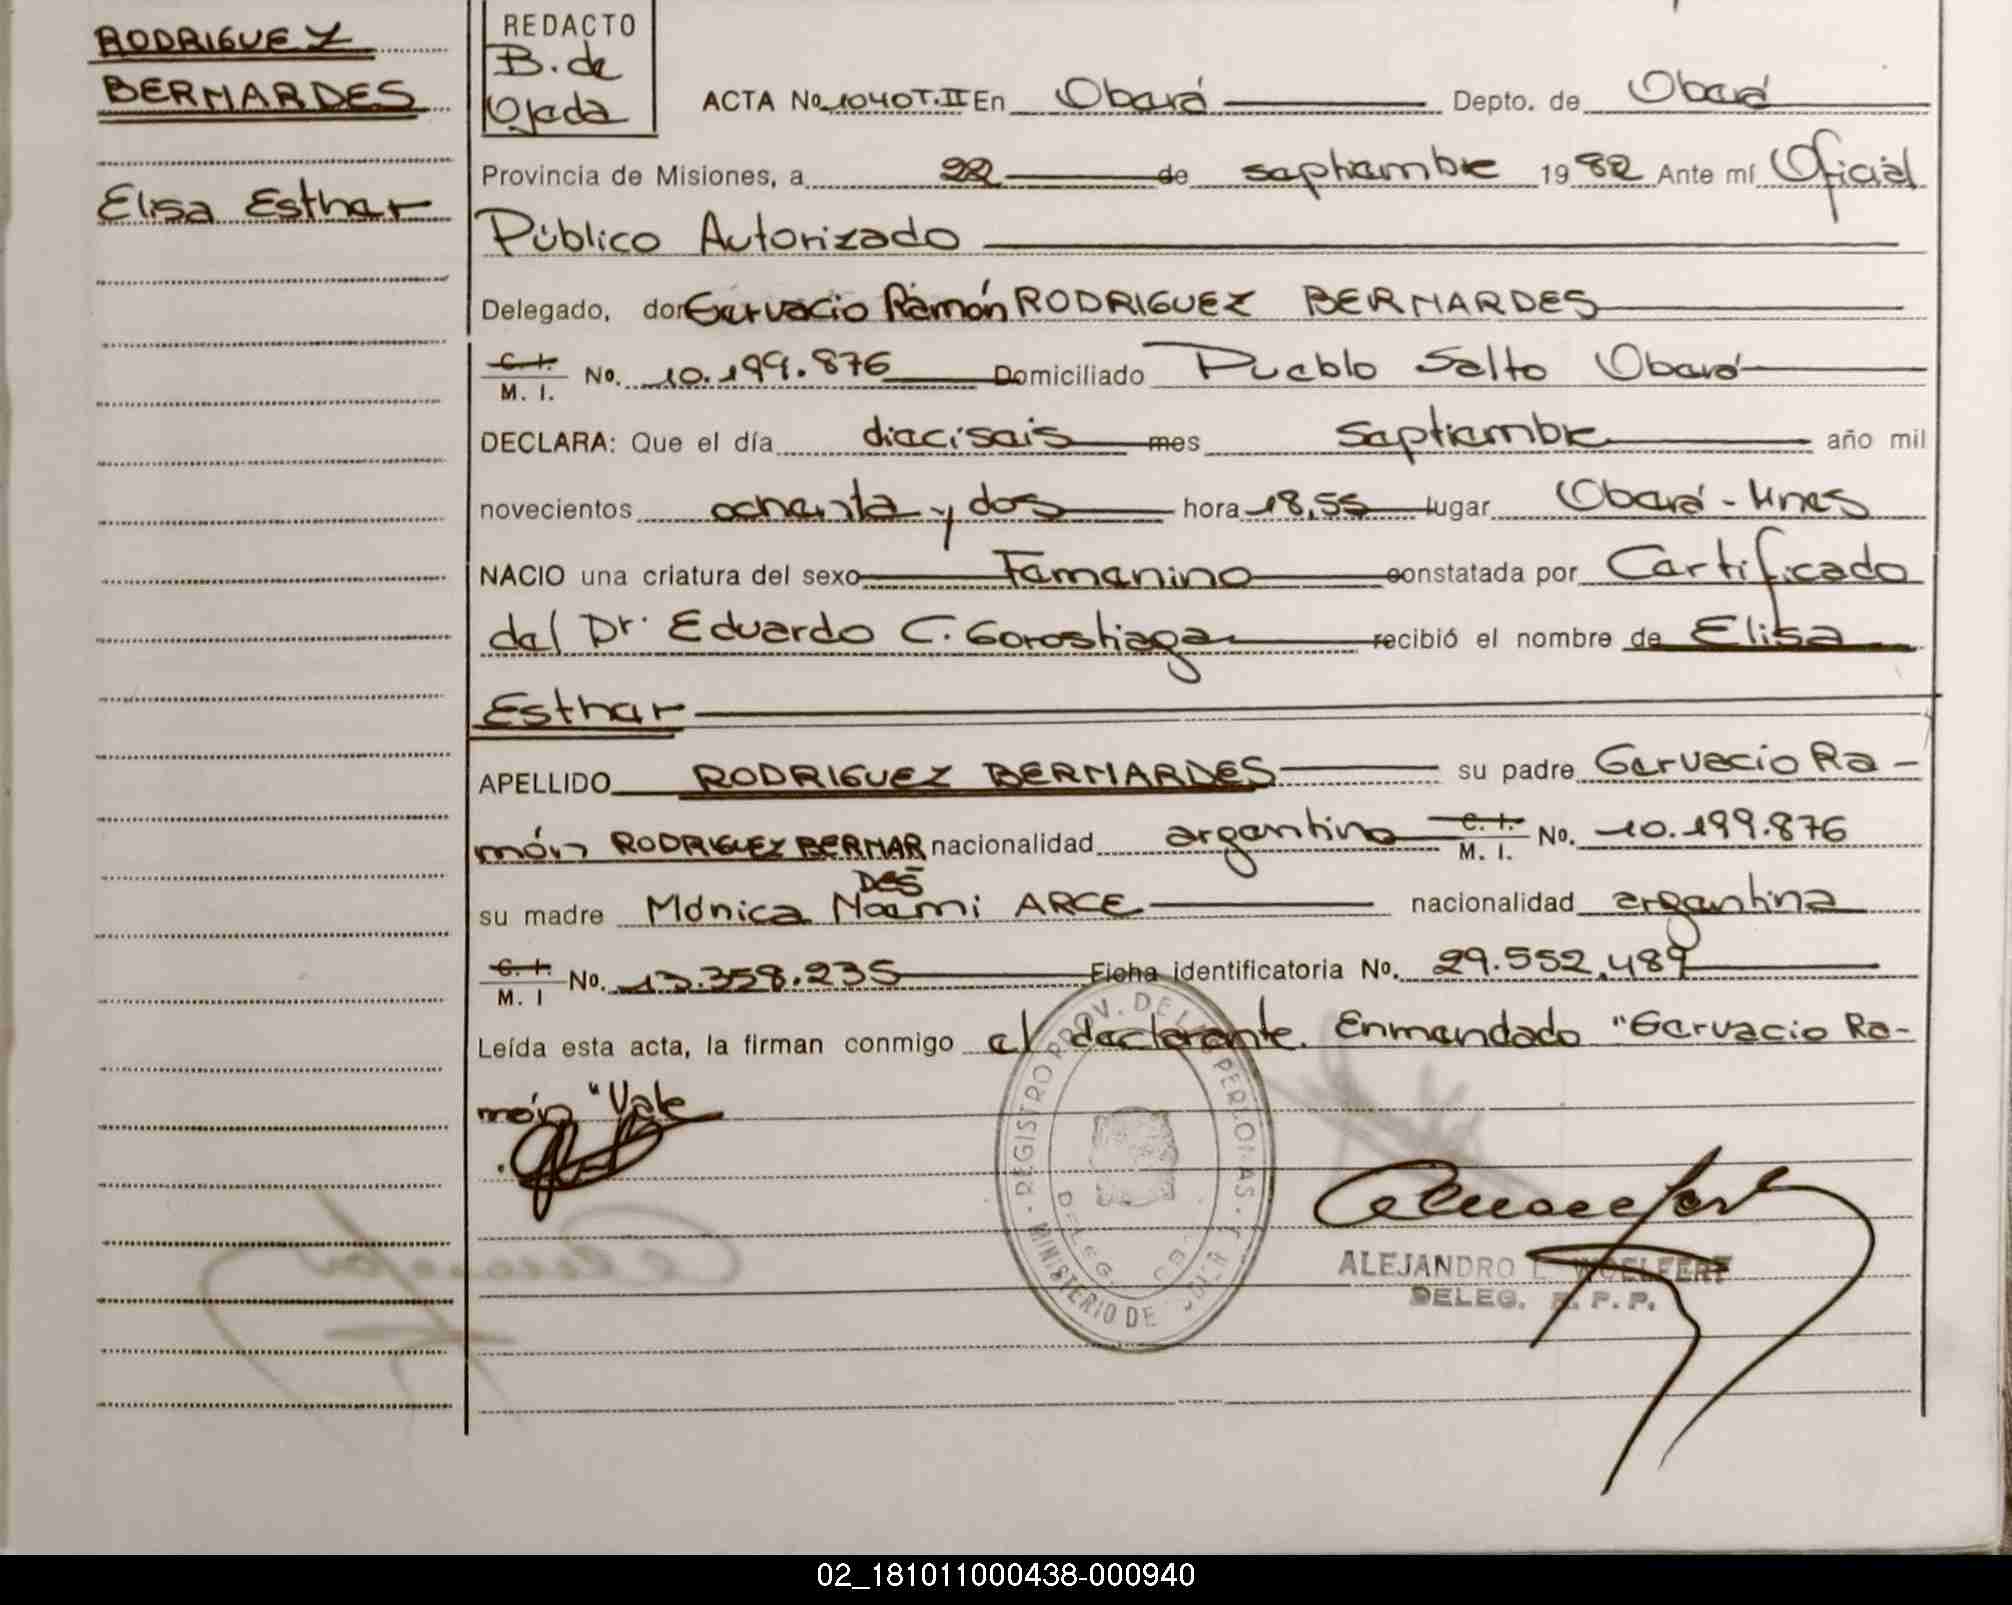 RODRIGUEZ
BERNARDES
Elisa Esther
REDACTO
B. de
Ojeda
ACTA No. 1040 T. II En Oberá Depto. de Oberá
Provincia de Misiones, a 22 de septiembre 1982 Ante mí Oficial
Público Autorizado
Delegado, don Gervacio Ramón RODRIGUEZ BERNARDES
C. I.
M. I. No. 10.199.876 Domiciliado Pueblo Salto Oberá
DECLARA: Que el día dieciseis mes Septiembre año mil
novecientos ochenta y dos hora 18,55 lugar Oberá - Mnes
NACIO una criatura del sexo Femenino constatada por Certificado
del Dr. Eduardo C. Gorostiaga recibió el nombre de Elisa
Esther
APELLIDO RODRIGUEZ BERNARDES su padre Gervacio Ra-
món RODRIGUEZ BERNAR nacionalidad argentino C. I. M. I. No. 10.199.876
DES
su madre Mónica Noemi ARCE nacionalidad argentina
C. I.
M. I No. 13.358.235 Ficha identificatoria No. 29.552.489
Leída esta acta, la firman conmigo el declarante. Enmendado "Gervacio Ra-
món" Vale
REGISTRO PROV. DE LAS PERSONAS
DELEG.
MINISTERIO DE
ALEJANDRO L. WOELFERT
DELEG. R. P. P.
02_181011000438-000940